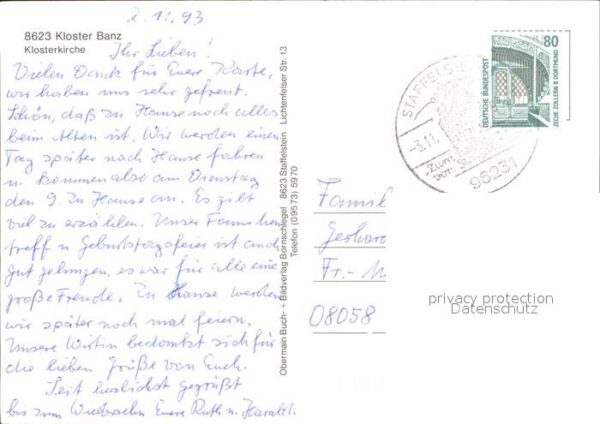 2.11.93
8623 Kloster Banz
Klosterkirche
Ihr Lieben!
Vielen Dank für Euere Karte,
wir haben uns sehr gefreut.
Schön, daß zu Hause noch alles
beim Alten ist. Wir werden einen
Tag später nach Hause fahren
u. kommen also am Dienstag
den 9. zu Hause an. Es gibt
viel zu erzählen. Unser
treff u. Geburtstagsfeier ist auch
gut gelungen, es war für alle eine
große Freude. Zu Hause werden
wir später noch mal feiern.
Unsere Wirtin bedankt sich für
die lieben Grüße von Euch.
Seit herzlichst gegrüßt
bis zum Wiedersehn Euere Ruth u. Harald.
Obermain Buch- + Bildverlag Bornschlegel 8623 Staffelstein Lichtenfelser Str. 13
Telefon (09573) 5970
80
DEUTSCHE BUNDESPOST
ZECHE ZOLLERN II DORTMUND
STAFFELS
-3.11.
Zum
von St
96231
Famil
Gerhard
Fr.-
08058
privacy protection
Datenschutz